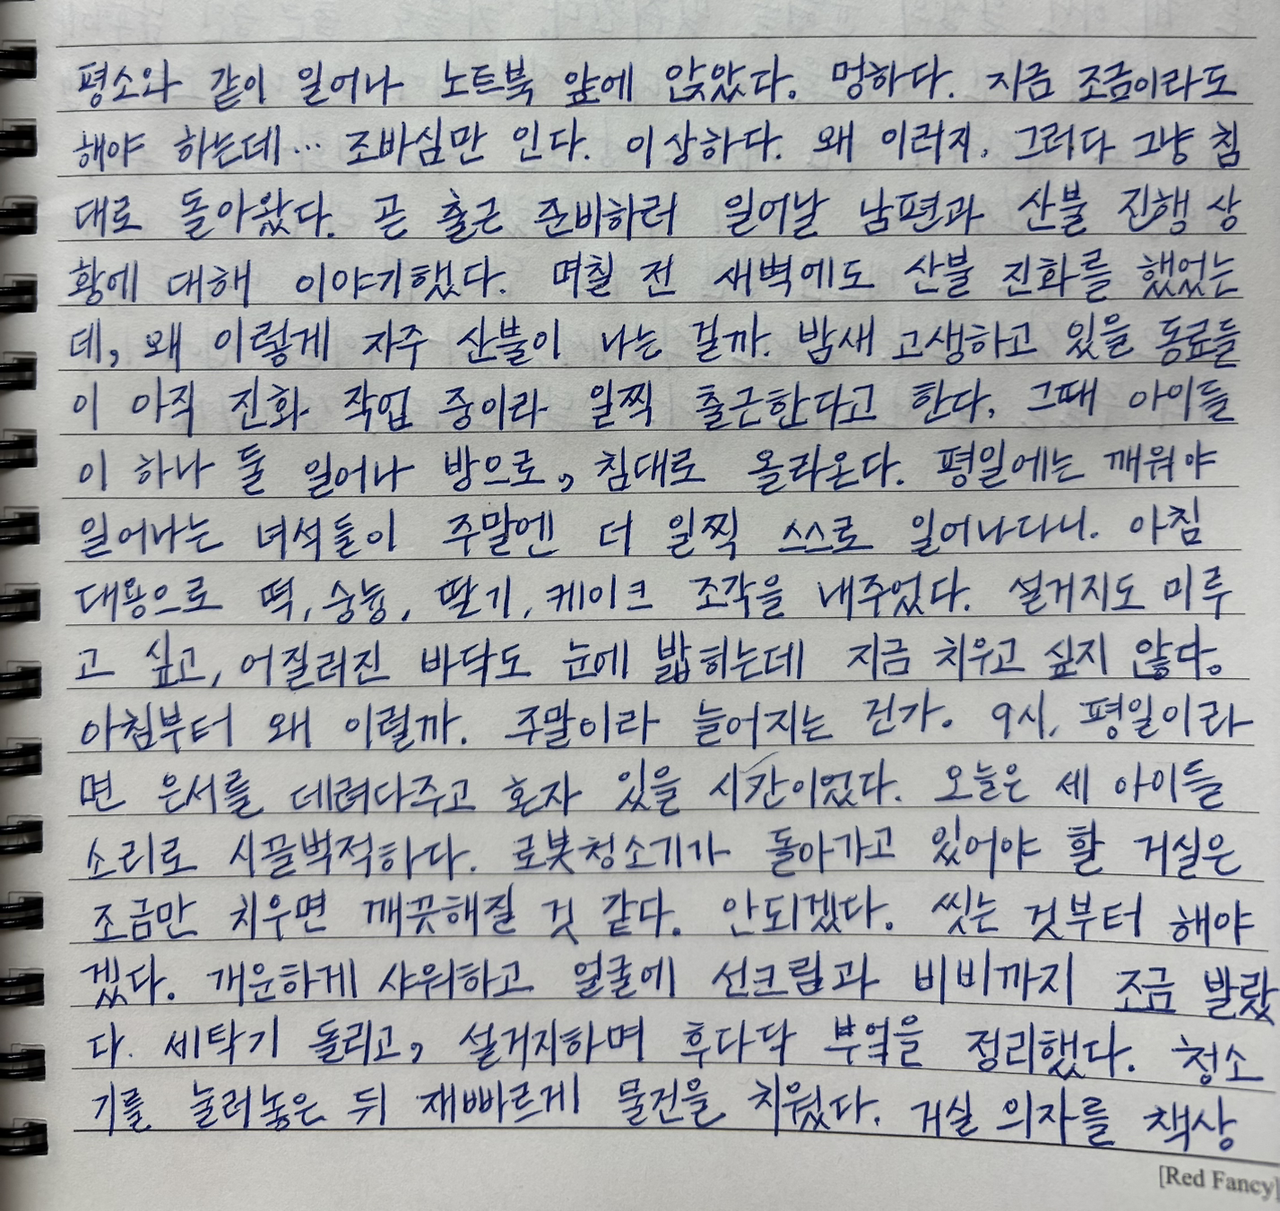 평소와 같이 일어나 노트북 앞에 앉았다. 멍하다. 지금 조금이라도
해야 하는데… 조바심만 인다. 이상하다. 왜 이러지. 그러다 그냥 침
대로 돌아왔다. 곧 출근 준비하러 일어날 남편과 산불 진행 상
황에 대해 이야기했다. 며칠 전 새벽에도 산불 진화를 했었는
데, 왜 이렇게 자주 산불이 나는 걸까. 밤새 고생하고 있을 동료들
이 아직 진화 작업 중이라 일찍 출근한다고 한다. 그때 아이들
이 하나 둘 일어나 방으로, 침대로 올라온다. 평일에는 깨워야
일어나는 녀석들이 주말엔 더 일찍 스스로 일어나다니. 아침
대용으로 떡, 숭늉, 딸기, 케이크 조각을 내주었다. 설거지도 미루
고 싶고, 어질러진 바닥도 눈에 밟히는데 지금 치우고 싶지 않다.
아침부터 왜 이럴까. 주말이라 늘어지는 건가. 9시, 평일이라
면 은서를 데려다주고 혼자 있을 시간이었다. 오늘은 세 아이들
소리로 시끌벅적하다. 로봇청소기가 돌아가고 있어야 할 거실은
조금만 치우면 깨끗해질 것 같다. 안되겠다. 씻는 것부터 해야
겠다. 개운하게 샤워하고 얼굴에 선크림과 비비까지 조금 발랐
다. 세탁기 돌리고, 설거지하며 후다닥 부엌을 정리했다. 청소
기를 눌러놓은 뒤 재빠르게 물건을 치웠다. 거실 의자를 책상
[Red Fancy]